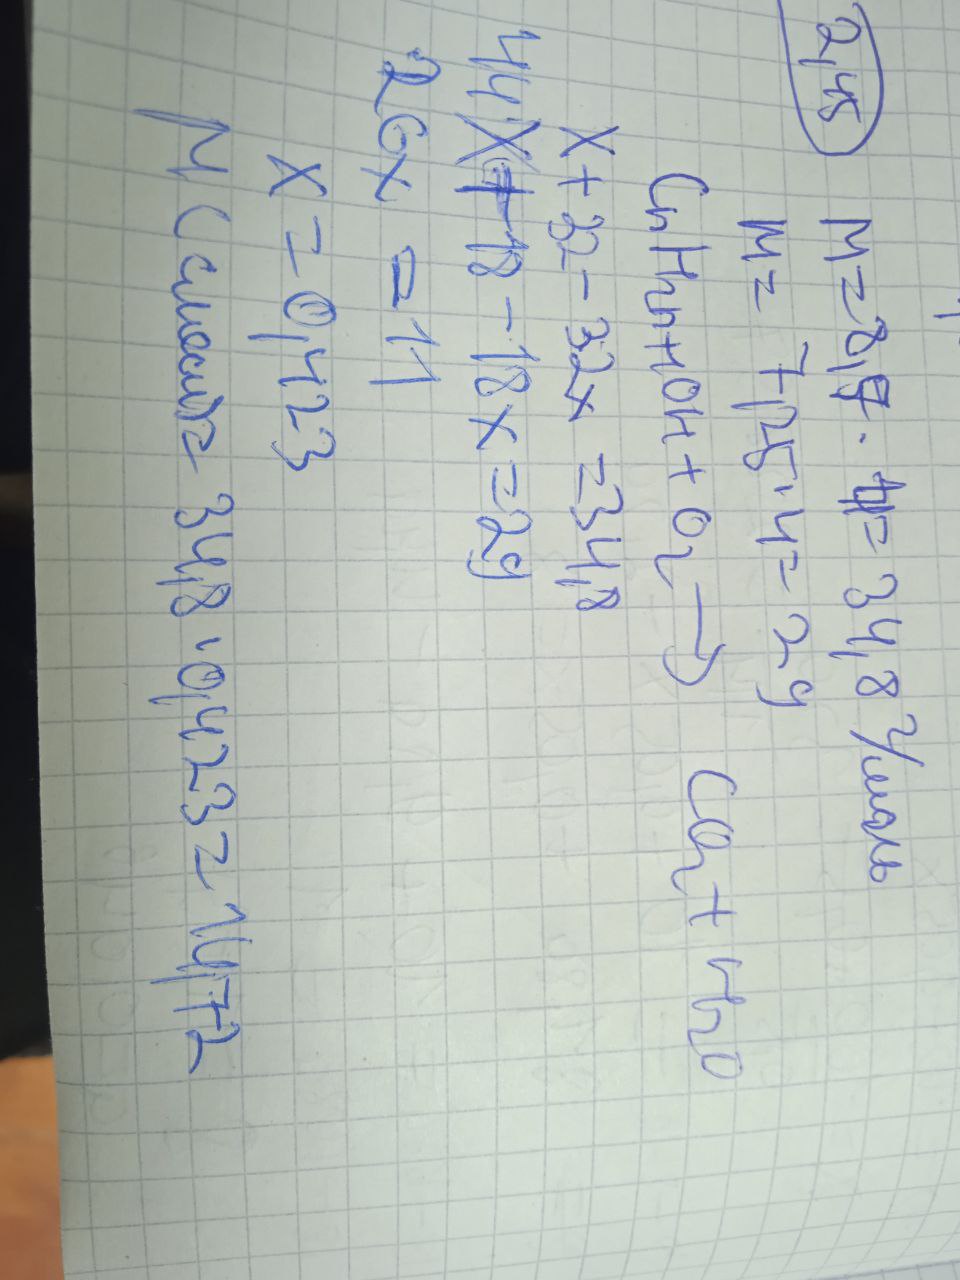 2,45
M=8,7·4=34,8 г/моль
M= 7,25·4=29
CnH2n+1OH+O2→ CO2+H2O
x+32-32x =34,8
44x+18-18x=29
26x =11
x=0,423
M(смеси)=34,8·0,423=14,72